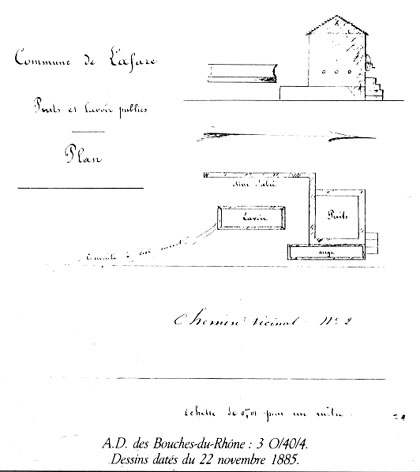 Commune de Lafare
Puits et Lavoir publics
Plan
mur d'abri
Lavoir
Puits
auge
Conduite
Chemin vicinal N° 2
échelle de 0,01 pour un mètre
A.D. des Bouches-du-Rhône : 3 O/40/4.
Dessins datés du 22 novembre 1885.